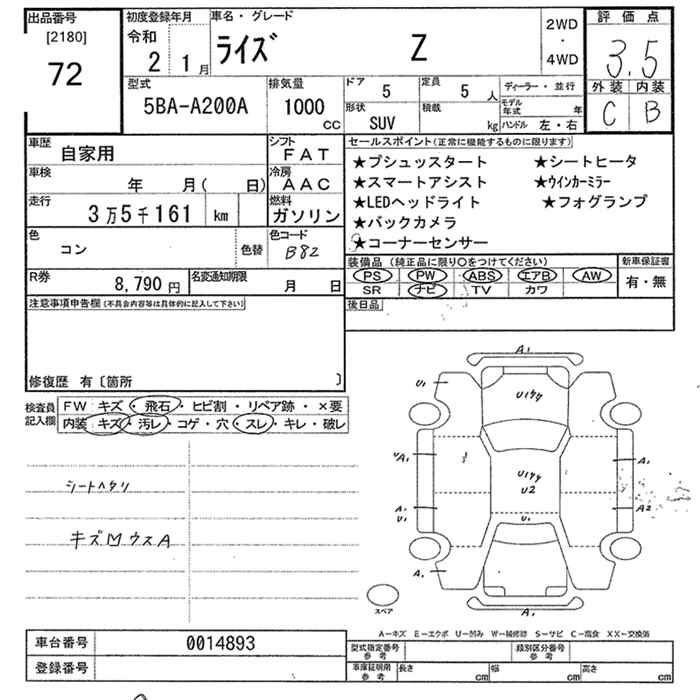 出品番号
[2180]
72
初度登録年月
令和
2 1月
車名・グレード
ライズ Z
2WD
・
4WD
評価点
3.5
外装 内装
C B
型式
5BA-A200A
排気量
1000
cc
ドア 5
定員 5 人
形状
SUV
積載
kg
ディーラー・並行
モデル年式 年
ハンドル 左・右
車歴
自家用
シフト
FAT
車検
年 月( 日)
冷房
AAC
走行
3万5千161 km
燃料
ガソリン
色
コン
色替
色コード
B82
R券
8,790円
名変通知期限
月 日
セールスポイント(正常に機能するものに限ります)
★プシュッスタート ★シートヒータ
★スマートアシスト ★ウインカーミラー
★LEDヘッドライト ★フォグランプ
★バックカメラ
★コーナーセンサー
装備品(純正品に限り○をつけてください)
PS PW ABS エアB AW
SR ナビ TV カワ
新車保証書
有・無
後日品
注意事項申告欄(不具合内容等は具体的に記入して下さい)
修復歴 有〔箇所 〕
検査員記入欄
FW: キズ・飛石・ヒビ割・リペア跡・×要
内装: キズ・汚レ・コゲ・穴・スレ・キレ・破レ
シートヘタリ
キズM ウスA
A1
U1
U144
UA1
U144
U2
A1
A1
U1
U1
A2
A1
A1
スペア
A-キズ E-エクボ U-凹み W-補修跡 S-サビ C-腐食 XX-交換済
車台番号
0014893
登録番号
型式指定番号
参考
類別区分番号
参考
車庫証明用
参考
長さ cm 幅 cm 高さ cm